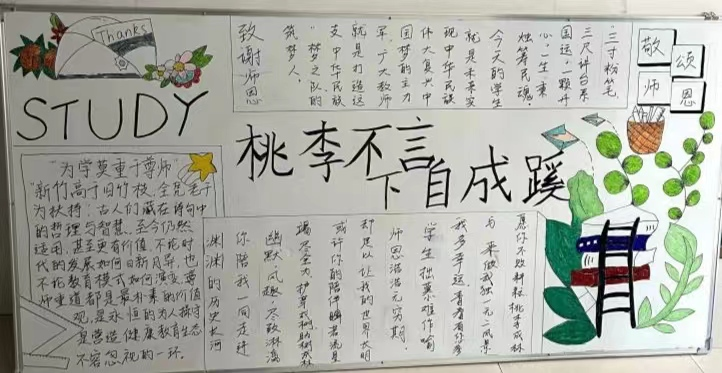 Thanks
STUDY
"为学莫重于尊师"
"新竹高于旧竹枝，全凭老干
为扶持"，古人们藏在诗句中
的哲理与智慧，至今仍然
适用，甚至更有价值。不论时
代的发展如何日新月异，也
不论教育模式如何演变，尊
师重道都是最朴素的价值
观，是永恒的为人操守
是营造健康教育生态
不容忽视的一环。
敬
颂
师
恩
"三寸粉笔，
三尺讲台系
国运；一颗丹
心，一生秉
烛筹民魂。"
今天的学生
就是未来实
现中华民族
伟大复兴中
国梦的主力
军，广大教师
就是打造这
支中华民族
"梦之队"的
筑梦人。
致谢师恩
桃李不言
下自成蹊
愿你不败耕耘 桃李成林
与 来做成独一无二风景
我多幸运，
学生拙笔难作喻
师恩浩浩无穷期。
却足以让我的世界大明
或许你的陪伴瞬若流星
竭尽全力，
幽默、风趣、尽致淋漓
你陪我一同走过
渊渊的历史长河